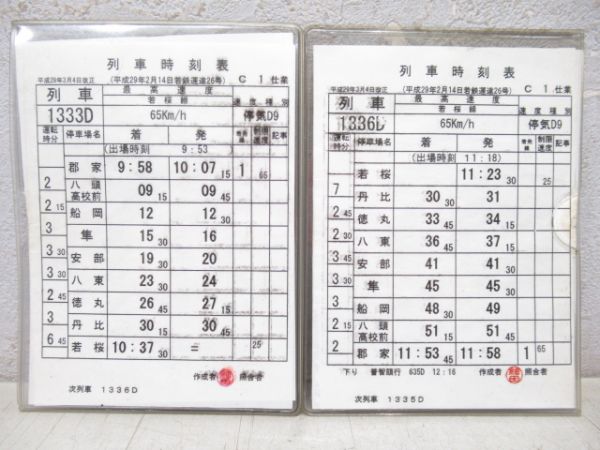 列車時刻表
平成29年3月4日改正 (平成29年2月14日若鉄運達26号) C 1 仕業
列車 最高速度
若桜線 速度種別
1333D 65Km/h 停気D9
運転時分 停車場名 着 発 着発線 制限速度 記事
(出場時刻 9:53)
郡家 9:58 10:07 15 1 65
2 八頭高校前 09 15 09 45
2 15 船岡 12 12 30
3 隼 15 30 16
3 30 安部 19 20
3 八東 23 24
2 45 徳丸 26 45 27 15
3 丹比 30 15 30 45
6 45 若桜 10:37 30 = 25
作成者 照合者
次列車 1336D
列車時刻表
平成29年3月4日改正 (平成29年2月14日若鉄運達26号) C 1 仕業
列車 最高速度
若桜線 速度種別
1336D 65Km/h 停気D9
運転時分 停車場名 着 発 着発線 制限速度 記事
(出場時刻 11:18)
若桜 11:23 30 25
7 丹比 30 30 31
2 45 徳丸 33 45 34 15
2 30 八東 36 45 37 15
安部 41 41 30
隼 45 45 30
船岡 48 30 49
2 15 八頭高校前 51 15 51 45
2 郡家 11:53 45 11:58 1 65
下り 普智頭行 635D 12:16 作成者 照合者
次列車 1335D